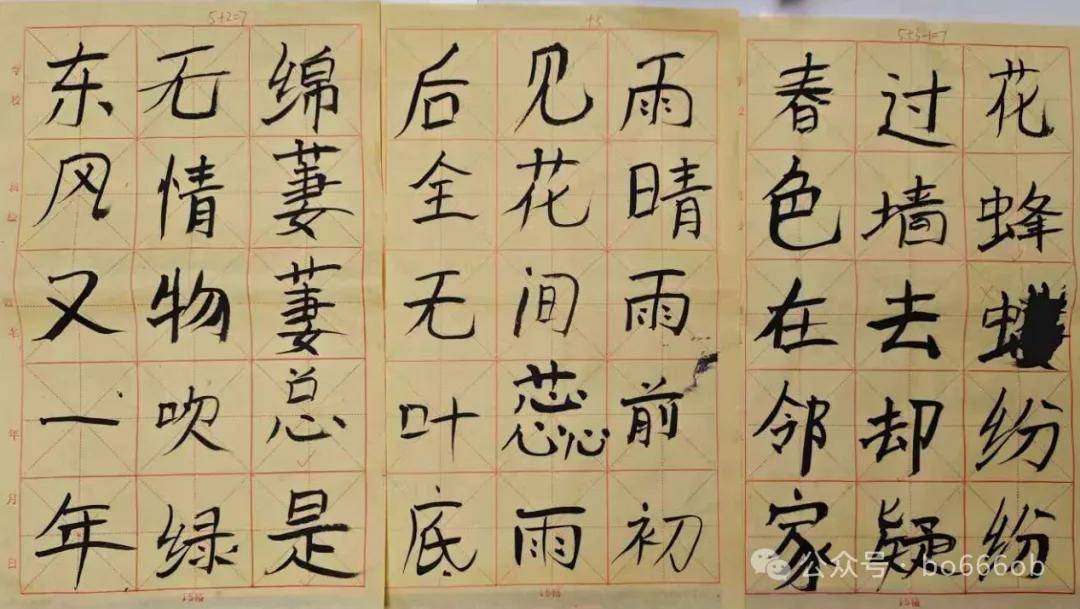 5+2=7
绵萋萋总是
无情物吹绿
东风又一年
年 月 日
15格
+5
雨晴雨前初
见花间蕊雨
后全无叶底
15格
5+3-1=7
花蜂纷纷
过墙去却疑
春色在邻家
15格
公众号·bo666ob